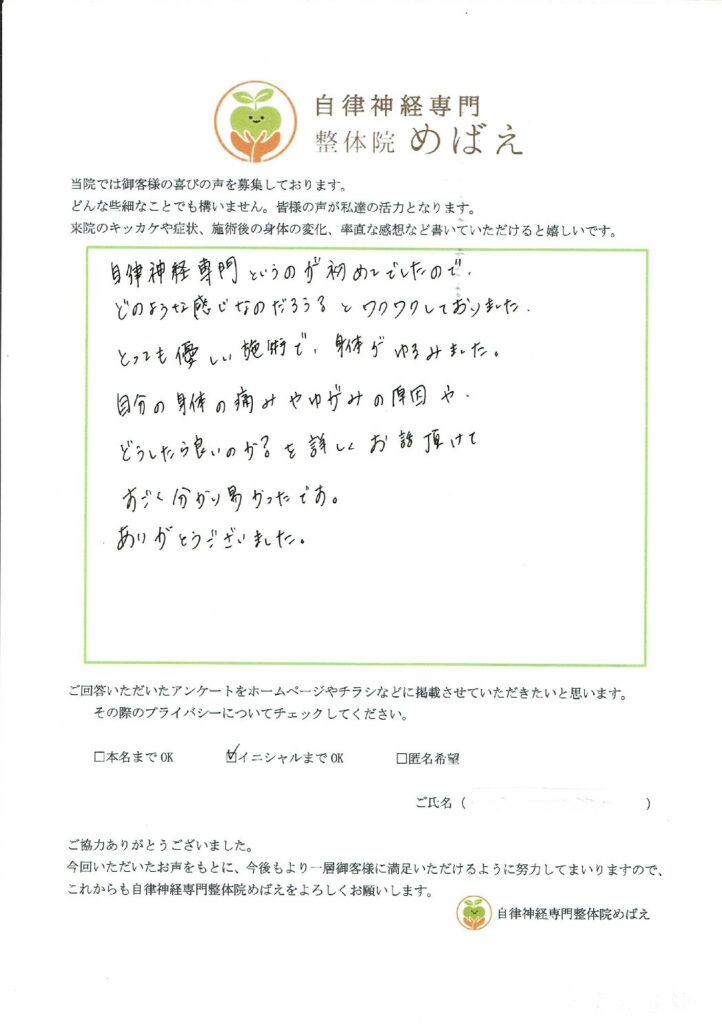 自律神経専門
整体院 めばえ
当院では御客様の喜びの声を募集しております。
どんな些細なことでも構いません。皆様の声が私達の活力となります。
来院のキッカケや症状、施術後の身体の変化、率直な感想など書いていただけると嬉しいです。
自律神経専門というのが初めてでしたので、
どのような感じなのだろうとワクワクしておりました。
とっても優しい施術で、身体がゆるみました。
自分の身体の痛みやゆがみの原因や、
どうしたら良いのかを詳しくお話頂けて
すごく分かり易かったです。
ありがとうございました。
ご回答いただいたアンケートをホームページやチラシなどに掲載させていただきたいと思います。
その際のプライバシーについてチェックしてください。
□本名までOK ☑イニシャルまでOK □匿名希望
ご氏名（ ）
ご協力ありがとうございました。
今回いただいたお声をもとに、今後もより一層御客様に満足いただけるように努力してまいりますので、
これからも自律神経専門整体院めばえをよろしくお願いします。
自律神経専門整体院めばえ